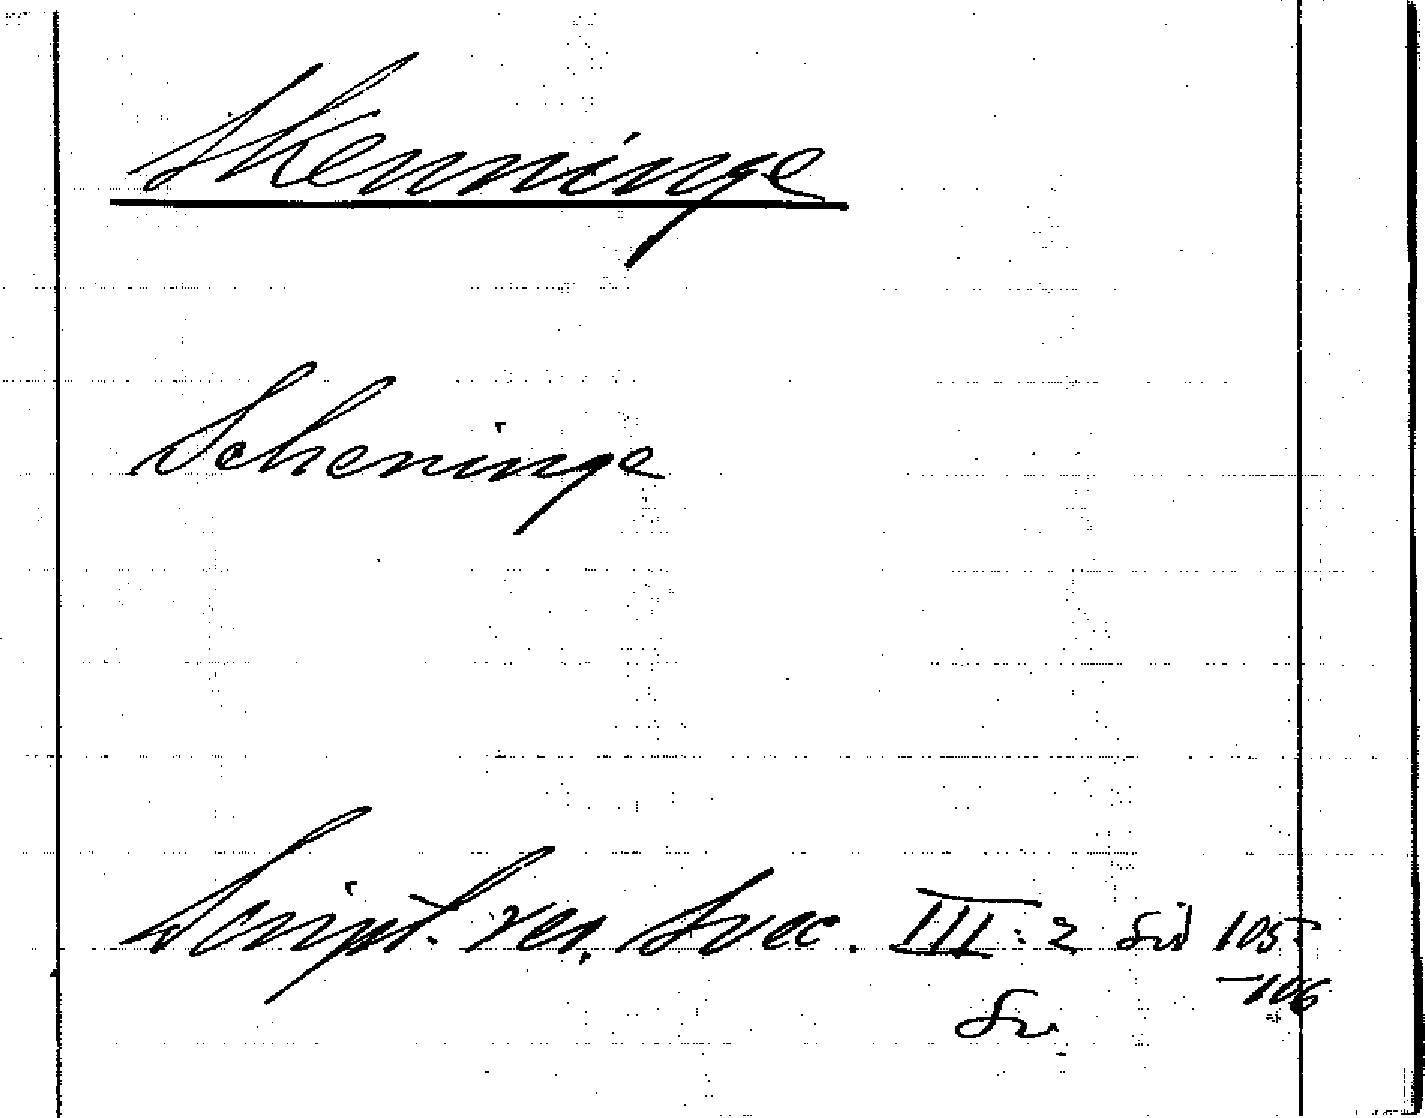 Skenninge
Scheninge
Script. rer. Svec. III: 2 Sid 105
-106